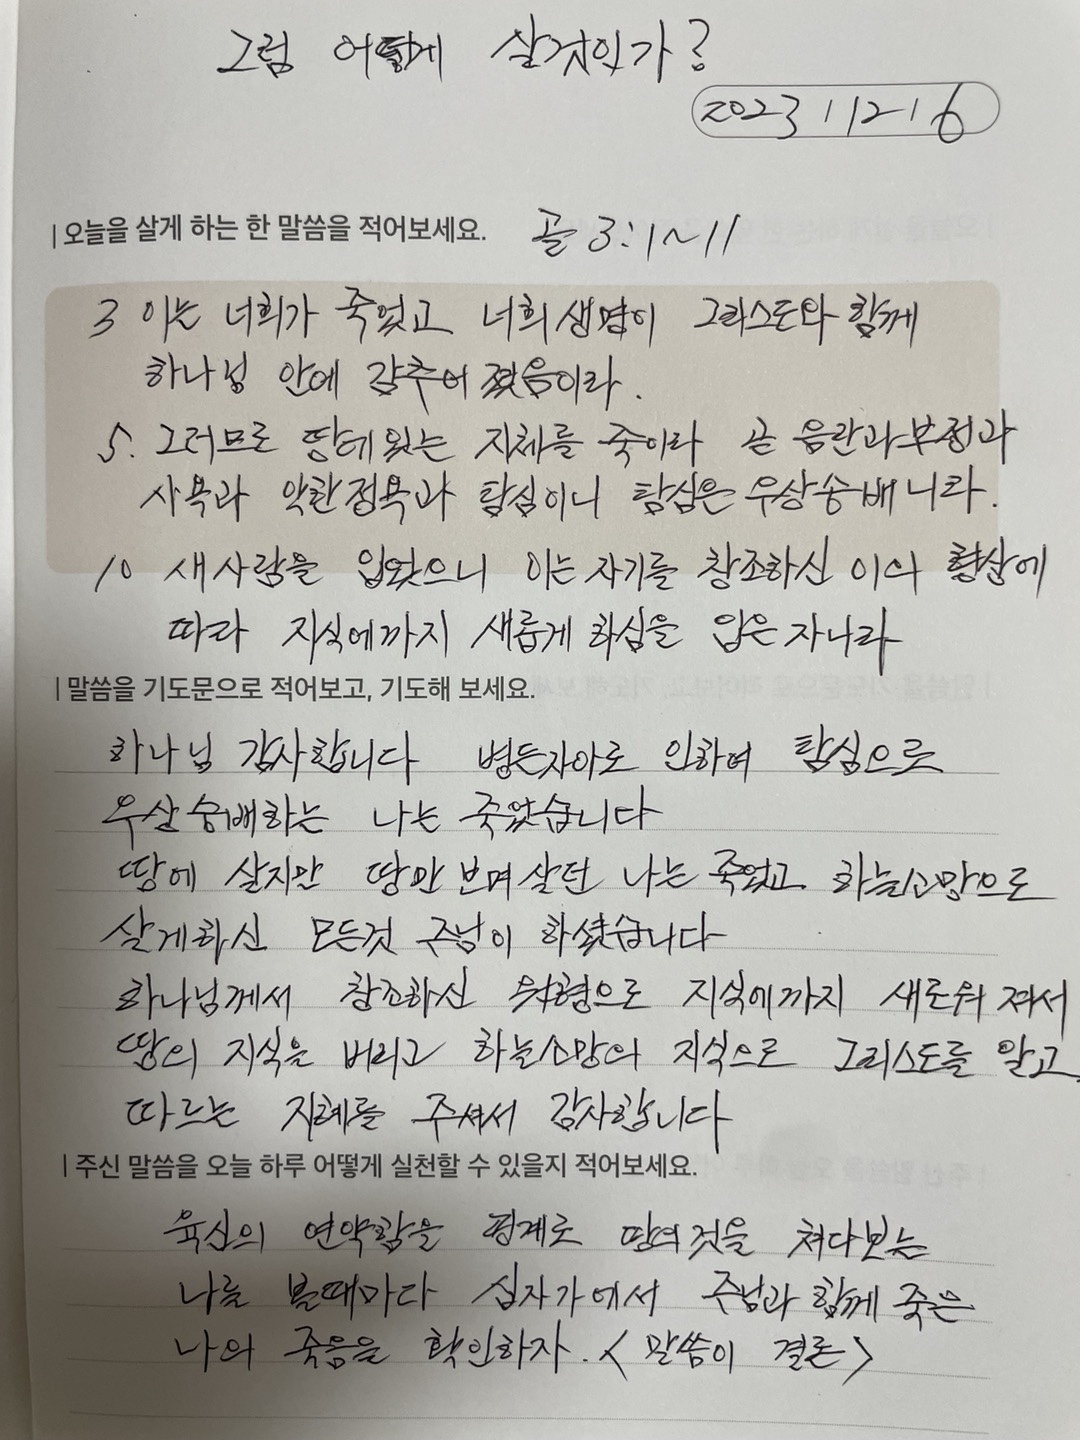 그럼 어떻게 살것인가?
2023 1 12 1 6
| 오늘을 살게 하는 한 말씀을 적어보세요. 골 3:1~11
3 이는 너희가 죽었고 너희생명이 그리스도와 함께
하나님 안에 감추어 졌음이라.
5. 그러므로 땅에있는 지체를 죽이라 곧 음란과부정과
사욕과 악한정욕과 탐심이니 탐심은 우상숭배니라.
10 새사람을 입었으니 이는 자기를 창조하신 이의 형상에
따라 지식에까지 새롭게 하심을 입은자니라
| 말씀을 기도문으로 적어보고, 기도해 보세요.
하나님 감사합니다 병든자아로 인하여 탐심으로
우상숭배하는 나는 죽었습니다
땅에 살지만 땅만보며살던 나는 죽었고 하늘소망으로
살게하신 모든것 주님이 하셨습니다
하나님께서 창조하신 원형으로 지식에까지 새로워져서
땅의 지식을 버리고 하늘소망의 지식으로 그리스도를 알고
따르는 지혜를 주셔서 감사합니다
| 주신 말씀을 오늘 하루 어떻게 실천할 수 있을지 적어보세요.
육신의 연약함을 핑계로 땅의것을 쳐다보는
나를 볼때마다 십자가에서 주님과 함께 죽은
나의 죽음을 확인하자. <말씀이 결론>